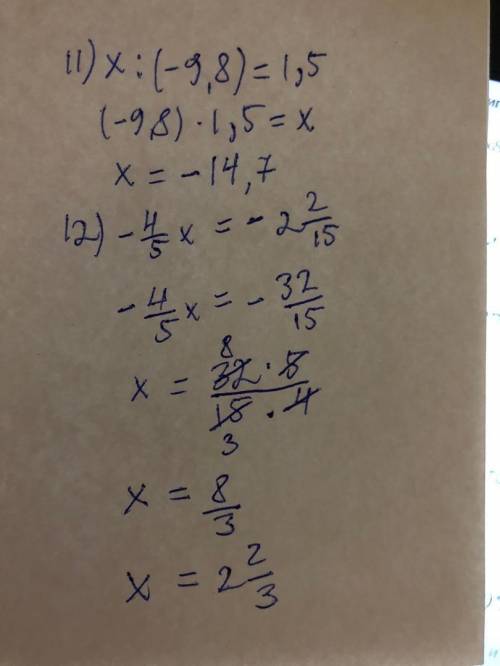 11) x : (-9,8) = 1,5
(-9,8) · 1,5 = x
x = -14,7
12) - 4/5 x = - 2 2/15
- 4/5 x = - 32/15
8
x = 32 · 5 / 15 · 4
3
x = 8/3
x = 2 2/3